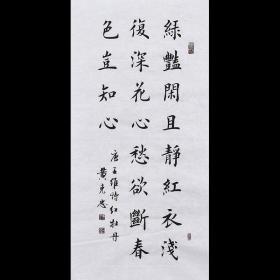 綠豔閑且靜紅衣淺
復深花心愁欲斷春
色豈知心
唐王維詩紅牡丹